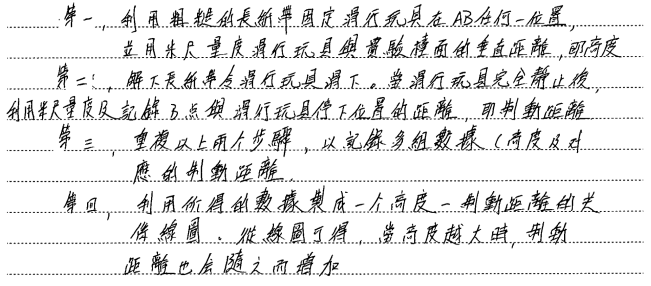 第一，利用粗糙的長絲帶固定滑行玩具在AB任何一位置，
並用米尺量度滑行玩具與實驗檯面的垂直距離，即高度
第二：，解下長絲帶令滑行玩具滑下。當滑行玩具完全靜止後，
利用米尺量度及記錄B点與滑行玩具停下位置的距離，即制動距離
第三，重複以上兩个步驟，以記錄多組數據（高度及对
應的制動距離．
第四，利用所得的數據製成一个高度－制動距離的关
係線圖．從線圖可得，當高度越大時，制動
距離也会隨之而增加